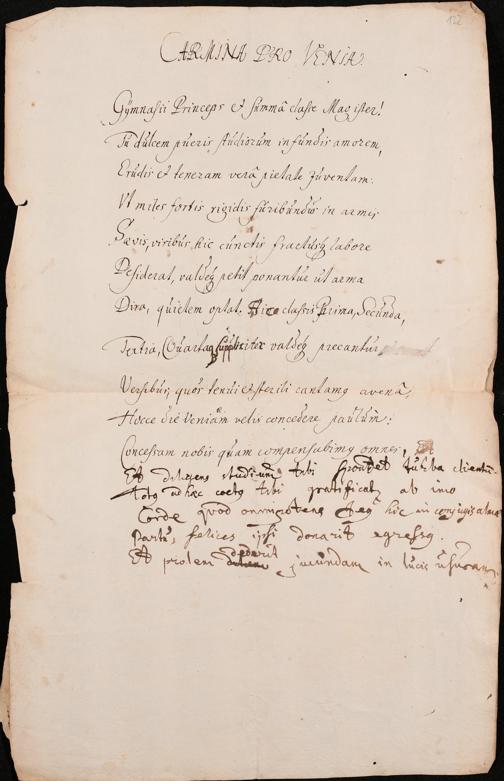 122
CARMINA PRO VENIA.
Gymnasii Princeps et summâ classe Magister!
Tu dulcem pueris studiorum infundis amorem,
Erudis et teneram verâ pietate Juventam.
Ut miles fortis rigidis furibundus in armis
Sævis, viribus hic cunctis fractusq labore
Desiderat, valdeq petit ponantur ut arma
Dira, quietem optat. Sic classis Prima, Secunda,
Tertia, Quartaq suppliciter valdeq precantur
Versibus, quos tenui et sterili cantamq avenâ,
Hocce die Veniam velis concedere paulum:
Concessam nobis quam compensabimq omnes,
Et diligens studium tibi spondet turba clientum.
Totq adhæc coetq tibi gratificatq ab imo
Corde quod omnipotens hic in conjugis almæ
Partu, felices ipsi donarit egressq.
Et prolem dederit jucundam in lucis usuram.